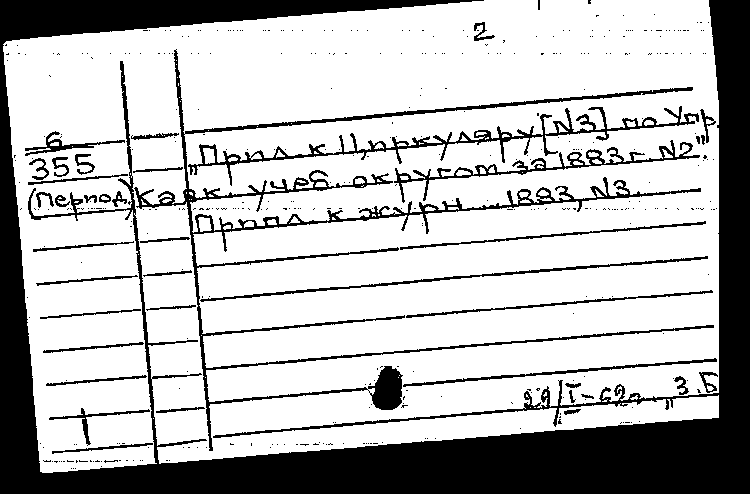 2
6
355
(Период.)
„Прил. к Циркуляру [N3] по Упр.
Кавк. учеб. округом за 1883 г. N2".
Прил. к журн. 1883, N3.
1
29/I-62г. „З.Б